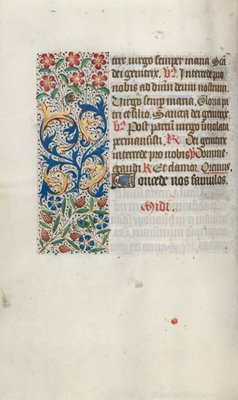 trix. virgo semper maria. Sca
dei genitrix. V. Intercede pro
nobis ad dnm deum nostrum.
Virgo semp maria. Gloria pa
tri et filio. Sancta dei genitrix.
V. Post partu virgo inviolata
permansisti. R. Dei genitrix
intercede pro nobis. V. Domine
exaudi. R. Et clamor. Oremus.
Concede nos famulos.
Midi.